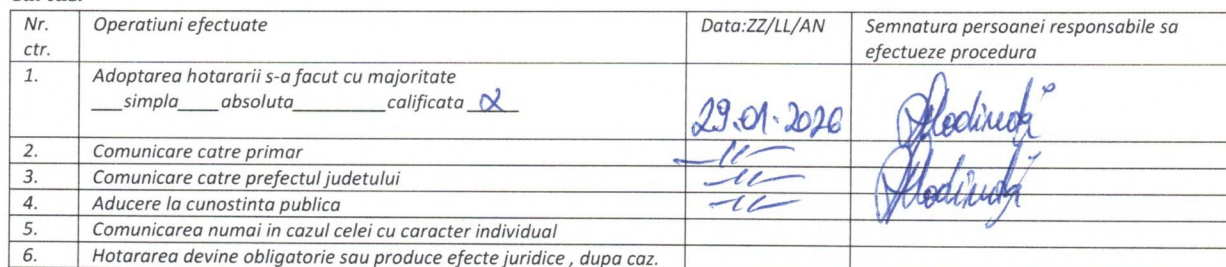 Nr. ctr. Operatiuni efectuate Data:ZZ/LL/AN Semnatura persoanei responsabile sa efectueze procedura
1. Adoptarea hotararii s-a facut cu majoritate
___simpla____absoluta_________calificata x 29.01.2026
2. Comunicare catre primar -//-
3. Comunicare catre prefectul judetului -//-
4. Aducere la cunostinta publica -//-
5. Comunicarea numai in cazul celei cu caracter individual
6. Hotararea devine obligatorie sau produce efecte juridice , dupa caz.